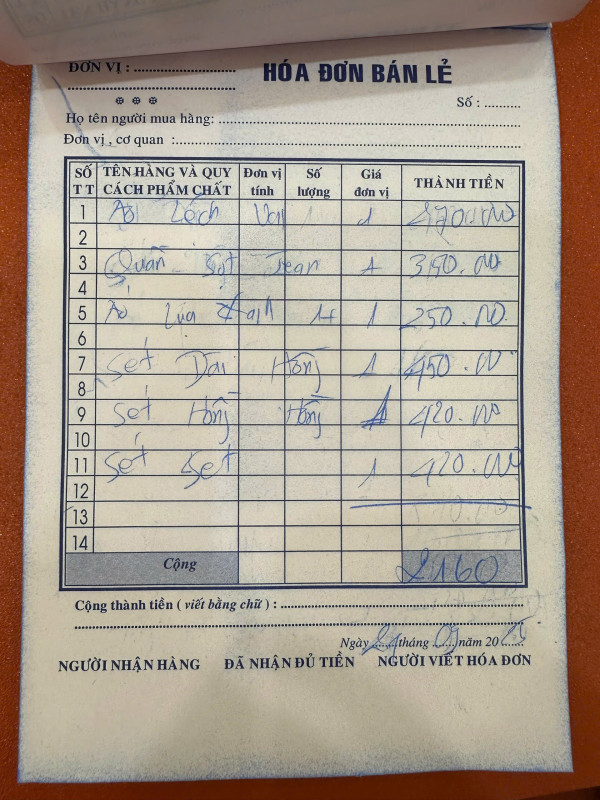 ĐƠN VỊ : ........................
HÓA ĐƠN BÁN LẺ
Số : ..........
Họ tên người mua hàng: ........................
Đơn vị , cơ quan :........................
SỐ TT TÊN HÀNG VÀ QUY CÁCH PHẨM CHẤT Đơn vị tính Số lượng Giá đơn vị THÀNH TIỀN
1 Áo 1
2
3 Quần Jean 1
4
5 Áo 1 250.000
6
7 Sét Dài Hồng 1 450.000
8
9 Sét Hồng Hồng 1 420.000
10
11 Sét Sét 1 420.000
12
13
14
Cộng 2160
Cộng thành tiền ( viết bằng chữ ) : ........................
Ngày ...... tháng 09 năm 20......
NGƯỜI NHẬN HÀNG ĐÃ NHẬN ĐỦ TIỀN NGƯỜI VIẾT HÓA ĐƠN